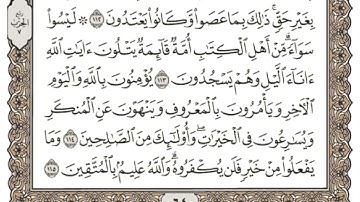 بِغَيْرِ حَقٍّ ذَٰلِكَ بِمَا عَصَوا۟ وَّكَانُوا۟ يَعْتَدُونَ ١١٢ ۞ لَيْسُوا۟
سَوَآءً مِّنْ أَهْلِ ٱلْكِتَٰبِ أُمَّةٌ قَآئِمَةٌ يَتْلُونَ ءَايَٰتِ ٱللَّهِ
ءَانَآءَ ٱلَّيْلِ وَهُمْ يَسْجُدُونَ ١١٣ يُؤْمِنُونَ بِٱللَّهِ وَٱلْيَوْمِ
ٱلْءَاخِرِ وَيَأْمُرُونَ بِٱلْمَعْرُوفِ وَيَنْهَوْنَ عَنِ ٱلْمُنكَرِ
وَيُسَٰرِعُونَ فِى ٱلْخَيْرَٰتِ وَأُو۟لَٰٓئِكَ مِنَ ٱلصَّٰلِحِينَ ١١٤ وَمَا
يَفْعَلُوا۟ مِنْ خَيْرٍ فَلَن يُكْفَرُوهُ وَٱللَّهُ عَلِيمٌۢ بِٱلْمُتَّقِينَ ١١٥
٦٤